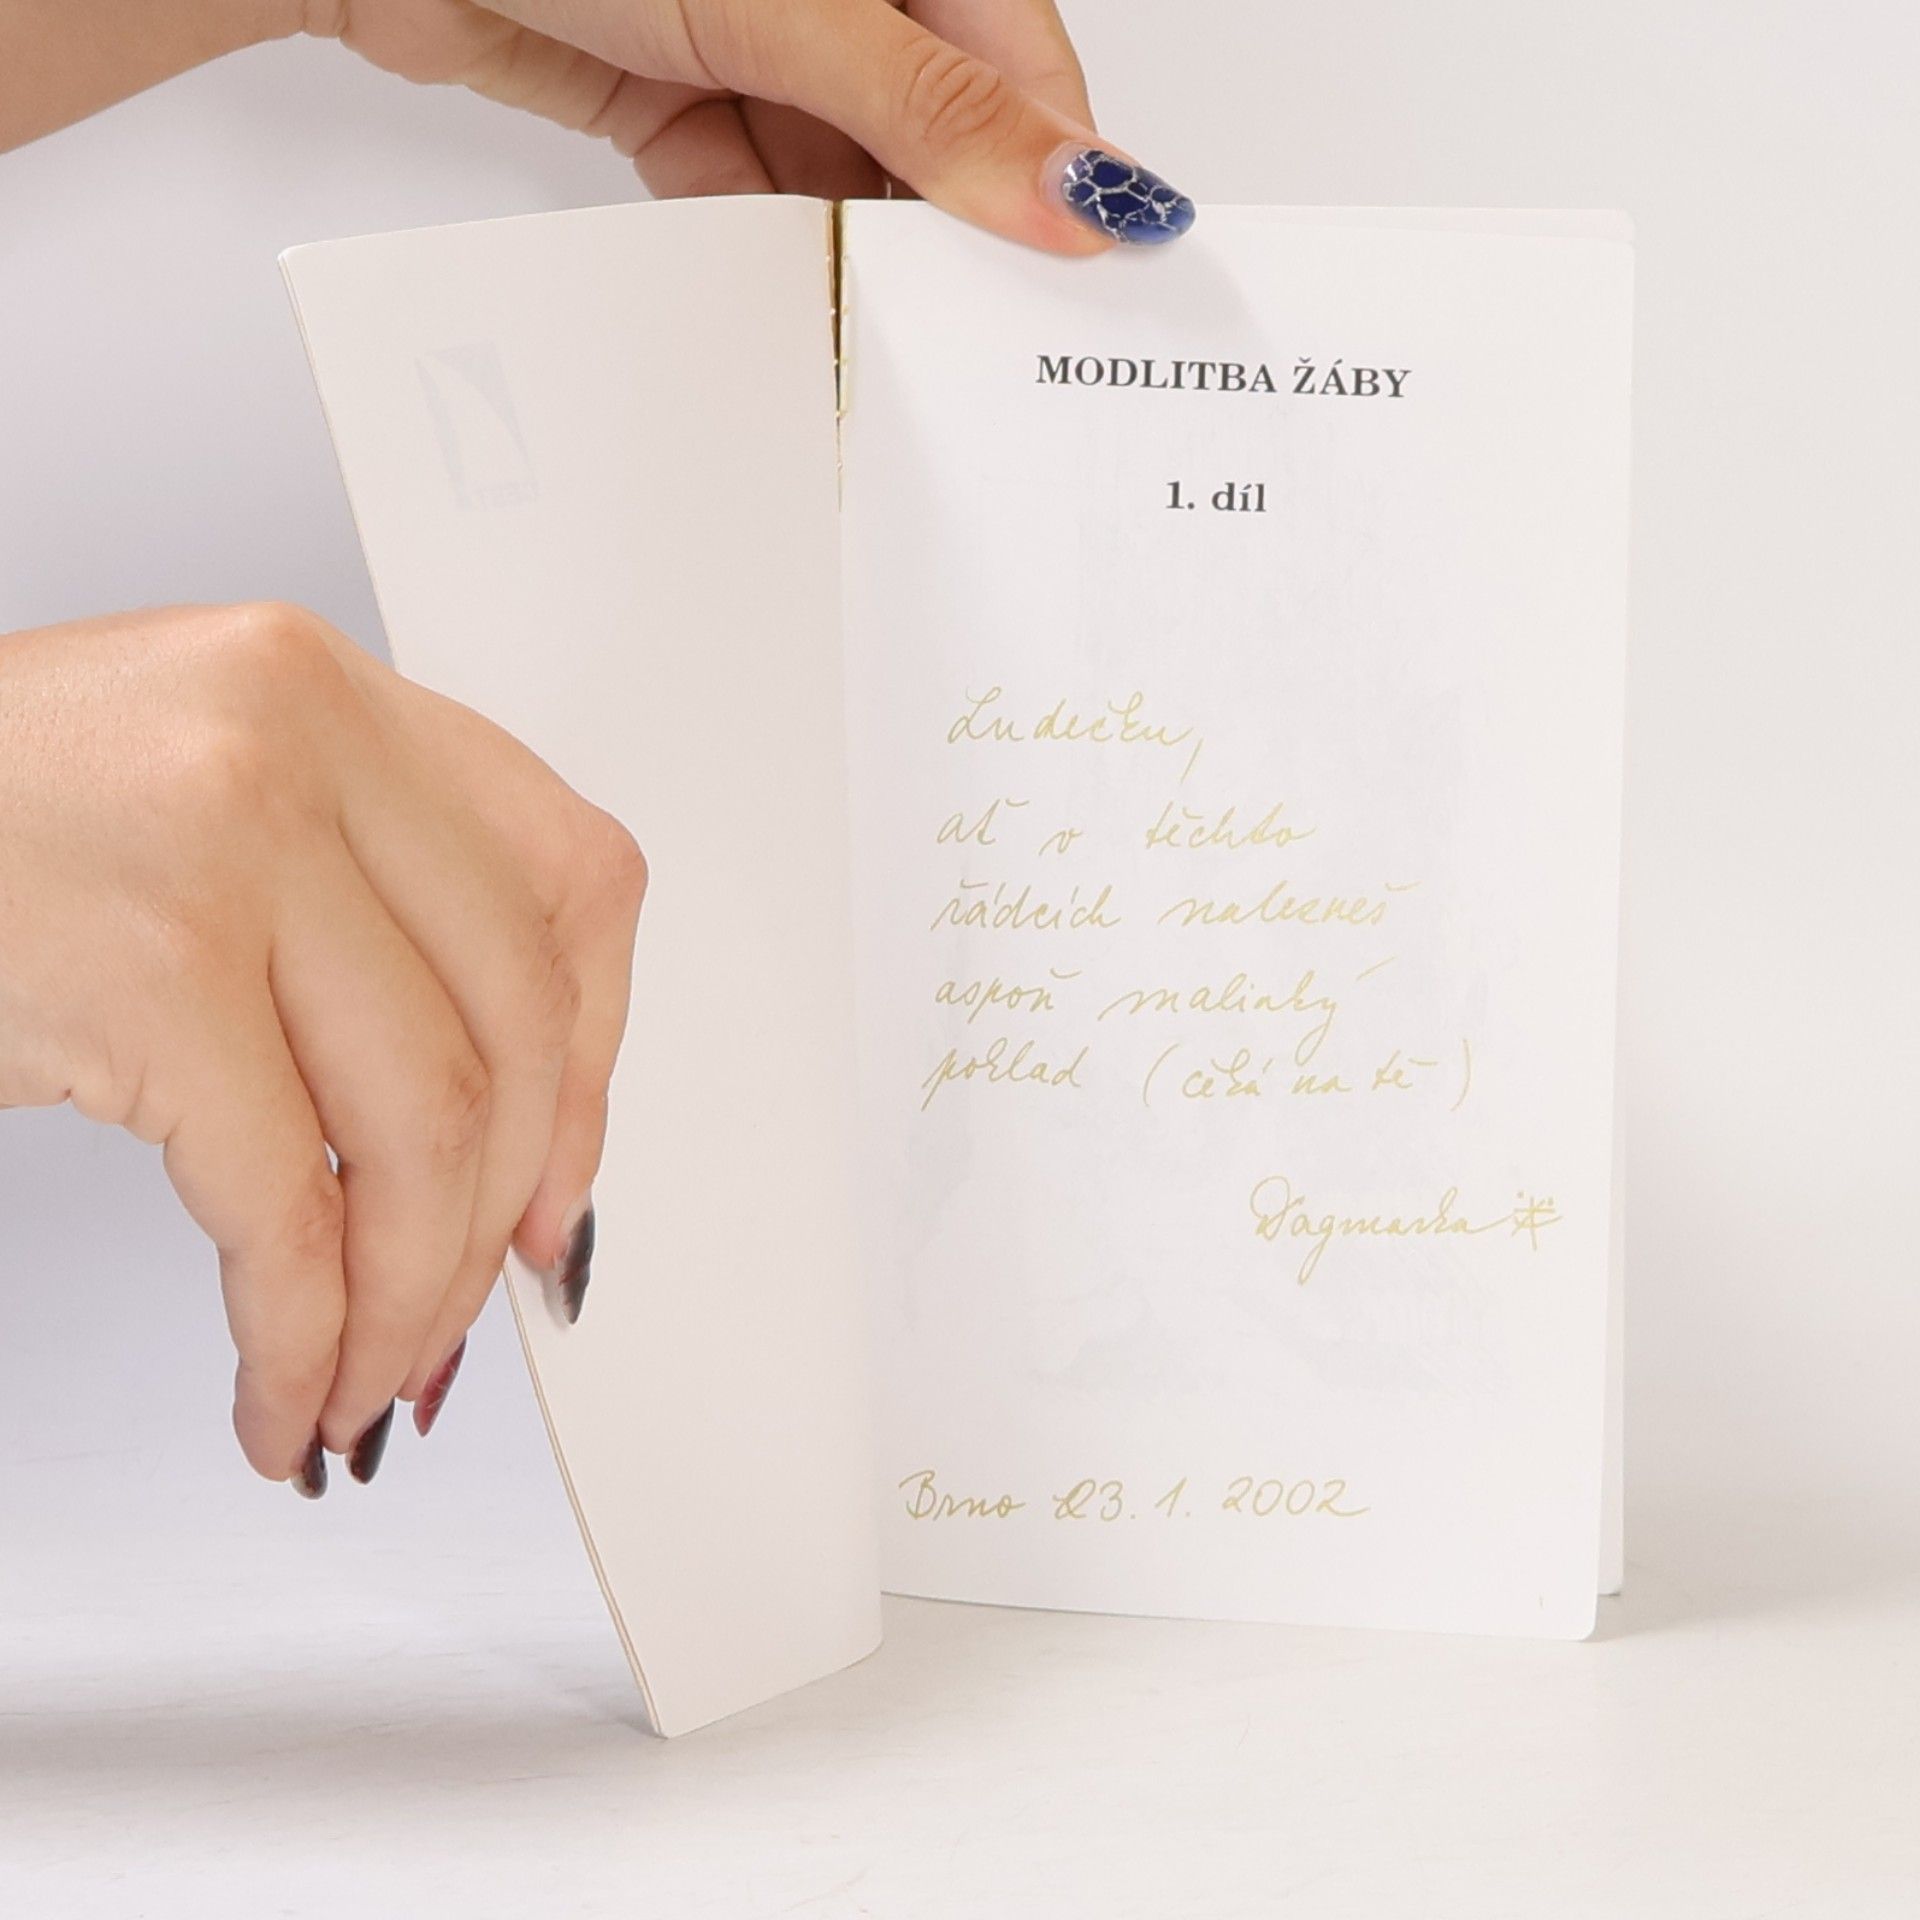 MODLITBA ŽÁBY
1. díl
Luděčku,
ať v těchto
řádcích nalezneš
aspoň malinký
poklad (čeká na tě)
Dagmarka
Brno 23. 1. 2002